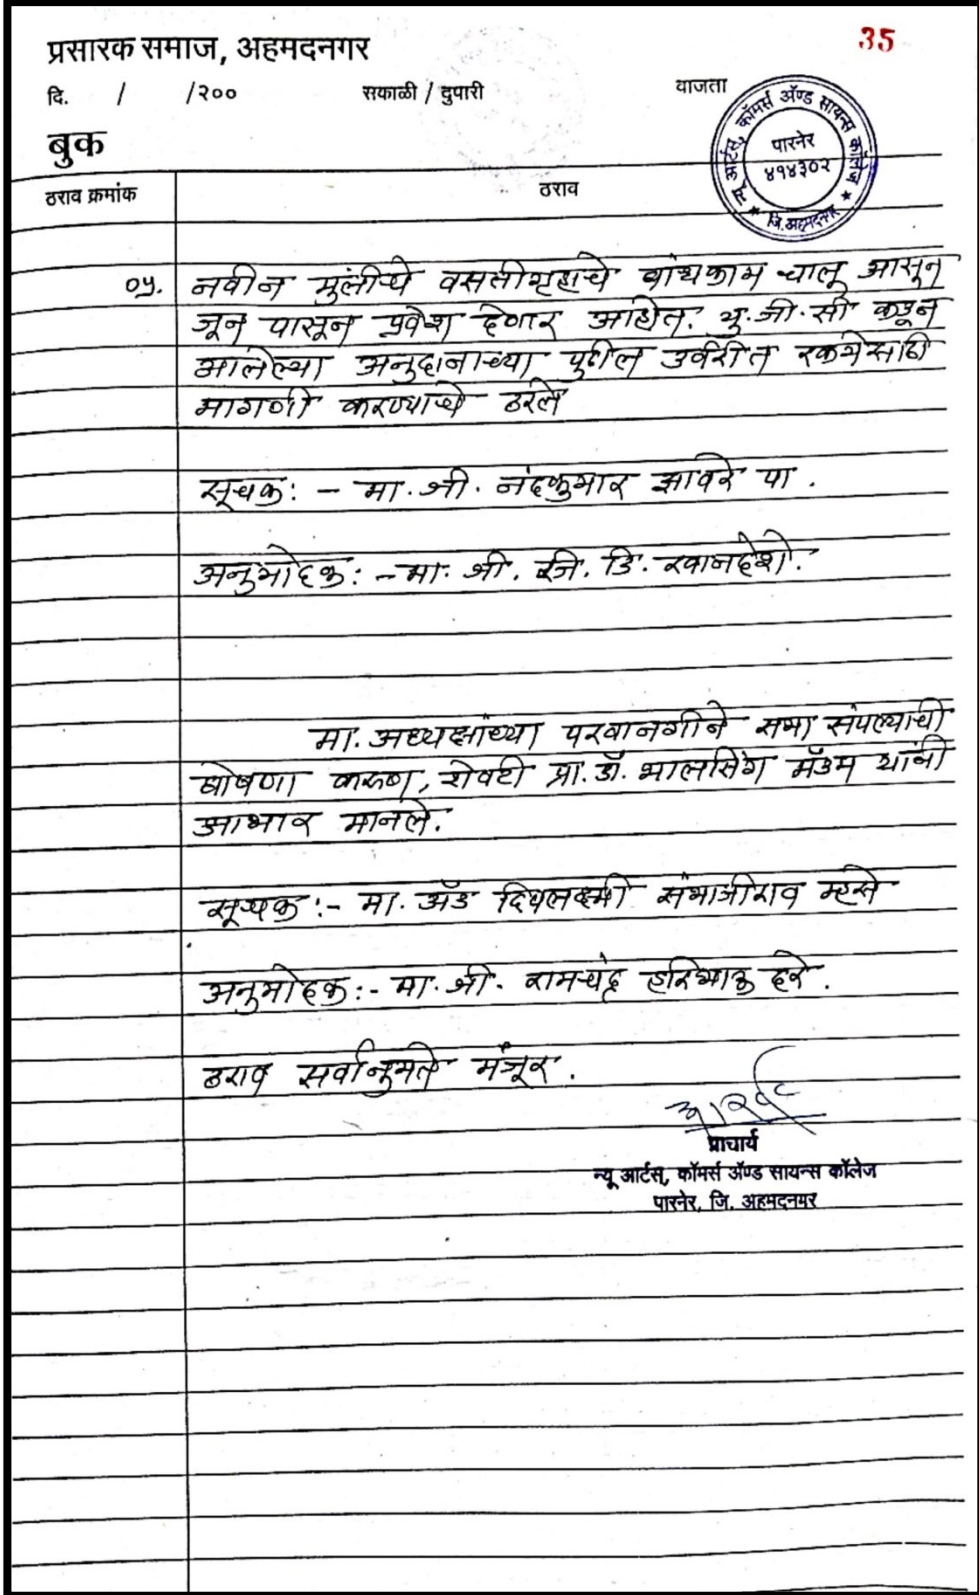 35
प्रसारक समाज, अहमदनगर
दि. / /२०० सकाळी / दुपारी वाजता
बुक
न्यू आर्टस्, कॉमर्स ॲण्ड सायन्स कॉलेज
पारनेर
४१४३०२
जि.अहमदनगर
ठराव क्रमांक ठराव
०५. नवीन मुलींचे वसतीगृहाचे बांधकाम चालू आसून
जून पासून प्रवेश देणार आहोत. यु.जी.सी कडून
आलेल्या अनुदानाच्या पुढील उर्वरीत रकमेसाठी
मागणी करण्याचे ठरले
सूचक: - मा. श्री. नंदकुमार झावरे पा.
अनुमोदक: - मा. श्री. जि. डि. खानदेशे.
मा. अध्यक्षांच्या परवानगीने सभा संपल्याची
घोषणा करुण, शेवटी प्रा. डॉ. भालसिंग मॅडम यांनी
आभार मानले.
सूचक :- मा. अ‍ॅड दिपलक्ष्मी संभाजीराव म्हसे
अनुमोदक :- मा. श्री. रामचंद्र हरिभाऊ दरे.
ठराव सर्वानुमते मंजूर.
प्राचार्य
न्यू आर्टस्, कॉमर्स ॲण्ड सायन्स कॉलेज
पारनेर, जि. अहमदनगर